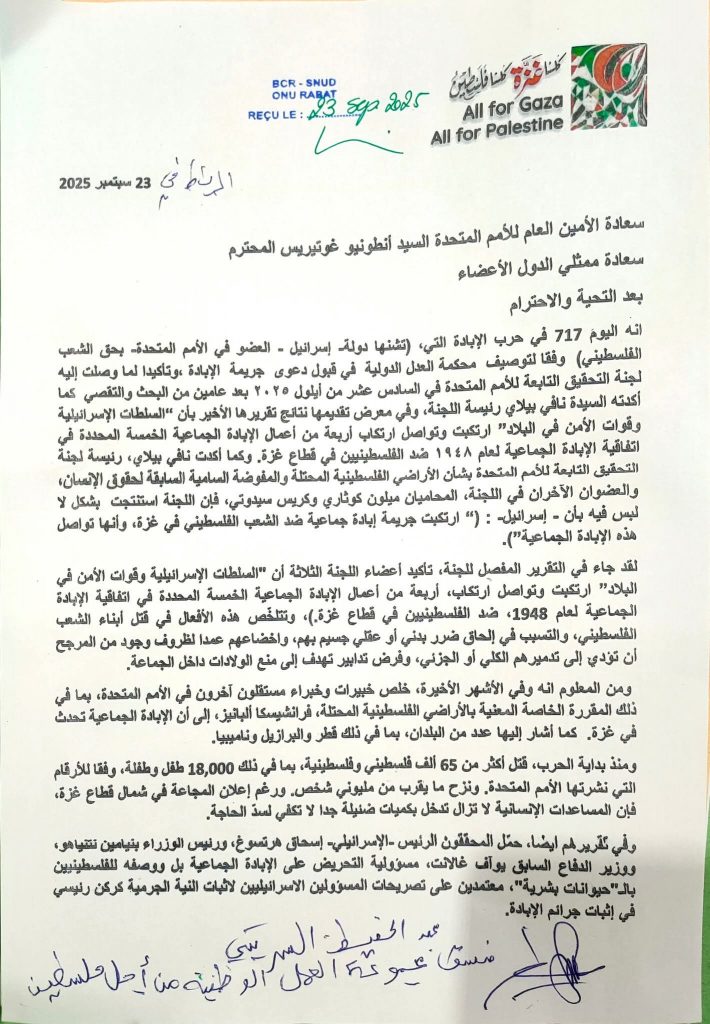 كلنا غزة كلنا فلسطين
All for Gaza
All for Palestine
BCR - SNUD
ONU RABAT
REÇU LE : 23 Sep 2025
الرباط في 23 سبتمبر 2025
سعادة الأمين العام للأمم المتحدة السيد أنطونيو غوتيريس المحترم
سعادة ممثلي الدول الأعضاء
بعد التحية والاحترام
انه اليوم 717 في حرب الإبادة التي، (تشنها دولة- إسرائيل - العضو في الأمم المتحدة- بحق الشعب
الفلسطيني) وفقا لتوصيف محكمة العدل الدولية في قبول دعوى جريمة الإبادة ،وتأكيدا لما وصلت إليه
لجنة التحقيق التابعة للأمم المتحدة في السادس عشر من أيلول ٢٠٢٥ بعد عامين من البحث والتقصي كما
أكدته السيدة نافي بيلاي رئيسة اللجنة، وفي معرض تقديمها نتائج تقريرها الأخير بأن "السلطات الإسرائيلية
وقوات الأمن في البلاد" ارتكبت وتواصل ارتكاب أربعة من أعمال الإبادة الجماعية الخمسة المحددة في
اتفاقية الإبادة الجماعية لعام ١٩٤٨ ضد الفلسطينيين في قطاع غزة. وكما أكدت نافي بيلاي، رئيسة لجنة
التحقيق التابعة للأمم المتحدة بشأن الأراضي الفلسطينية المحتلة والمفوضة السامية السابقة لحقوق الإنسان،
والعضوان الآخران في اللجنة، المحاميان ميلون كوثاري وكريس سيدوتي، فإن اللجنة استنتجت بشكل لا
لبس فيه بأن - إسرائيل- : (" ارتكبت جريمة إبادة جماعية ضد الشعب الفلسطيني في غزة، وأنها تواصل
هذه الإبادة الجماعية").
لقد جاء في التقرير المفصل للجنة، تأكيد أعضاء اللجنة الثلاثة أن "السلطات الإسرائيلية وقوات الأمن في
البلاد" ارتكبت وتواصل ارتكاب، أربعة من أعمال الإبادة الجماعية الخمسة المحددة في اتفاقية الإبادة
الجماعية لعام 1948، ضد الفلسطينيين في قطاع غزة.)، وتتلخّص هذه الأفعال في قتل أبناء الشعب
الفلسطيني، والتسبب في إلحاق ضرر بدني أو عقلي جسيم بهم، واخضاعهم عمدا لظروف وجود من المرجح
أن تؤدي إلى تدميرهم الكلي أو الجزئي، وفرض تدابير تهدف إلى منع الولادات داخل الجماعة.
ومن المعلوم انه وفي الأشهر الأخيرة، خلص خبيرات وخبراء مستقلون آخرون في الأمم المتحدة، بما في
ذلك المقررة الخاصة المعنية بالأراضي الفلسطينية المحتلة، فرانشيسكا ألبانيز، إلى أن الإبادة الجماعية تحدث
في غزة. كما أشار إليها عدد من البلدان، بما في ذلك قطر والبرازيل وناميبيا.
ومنذ بداية الحرب، قتل أكثر من 65 ألف فلسطيني وفلسطينية، بما في ذلك 18,000 طفل وطفلة، وفقا للأرقام
التي نشرتها الأمم المتحدة. ونزح ما يقرب من مليوني شخص. ورغم إعلان المجاعة في شمال قطاع غزة،
فإن المساعدات الإنسانية لا تزال تدخل بكميات ضئيلة جدا لا تكفي لسدّ الحاجة.
وفي تقريرهم ايضا، حمّل المحققون الرئيس -الإسرائيلي- إسحاق هرتسوغ، ورئيس الوزراء بنيامين نتنياهو،
ووزير الدفاع السابق يوآف غالانت، مسؤولية التحريض على الإبادة الجماعية بل ووصفه للفلسطينيين
بالـ"حيوانات بشرية"، معتمدين على تصريحات المسؤولين الاسرائيليين لاثبات النية الجرمية كركن رئيسي
في إثبات جرائم الإبادة.
عبد الحفيظ السريتي
منسق مجموعة العمل الوطنية من أجل فلسطين